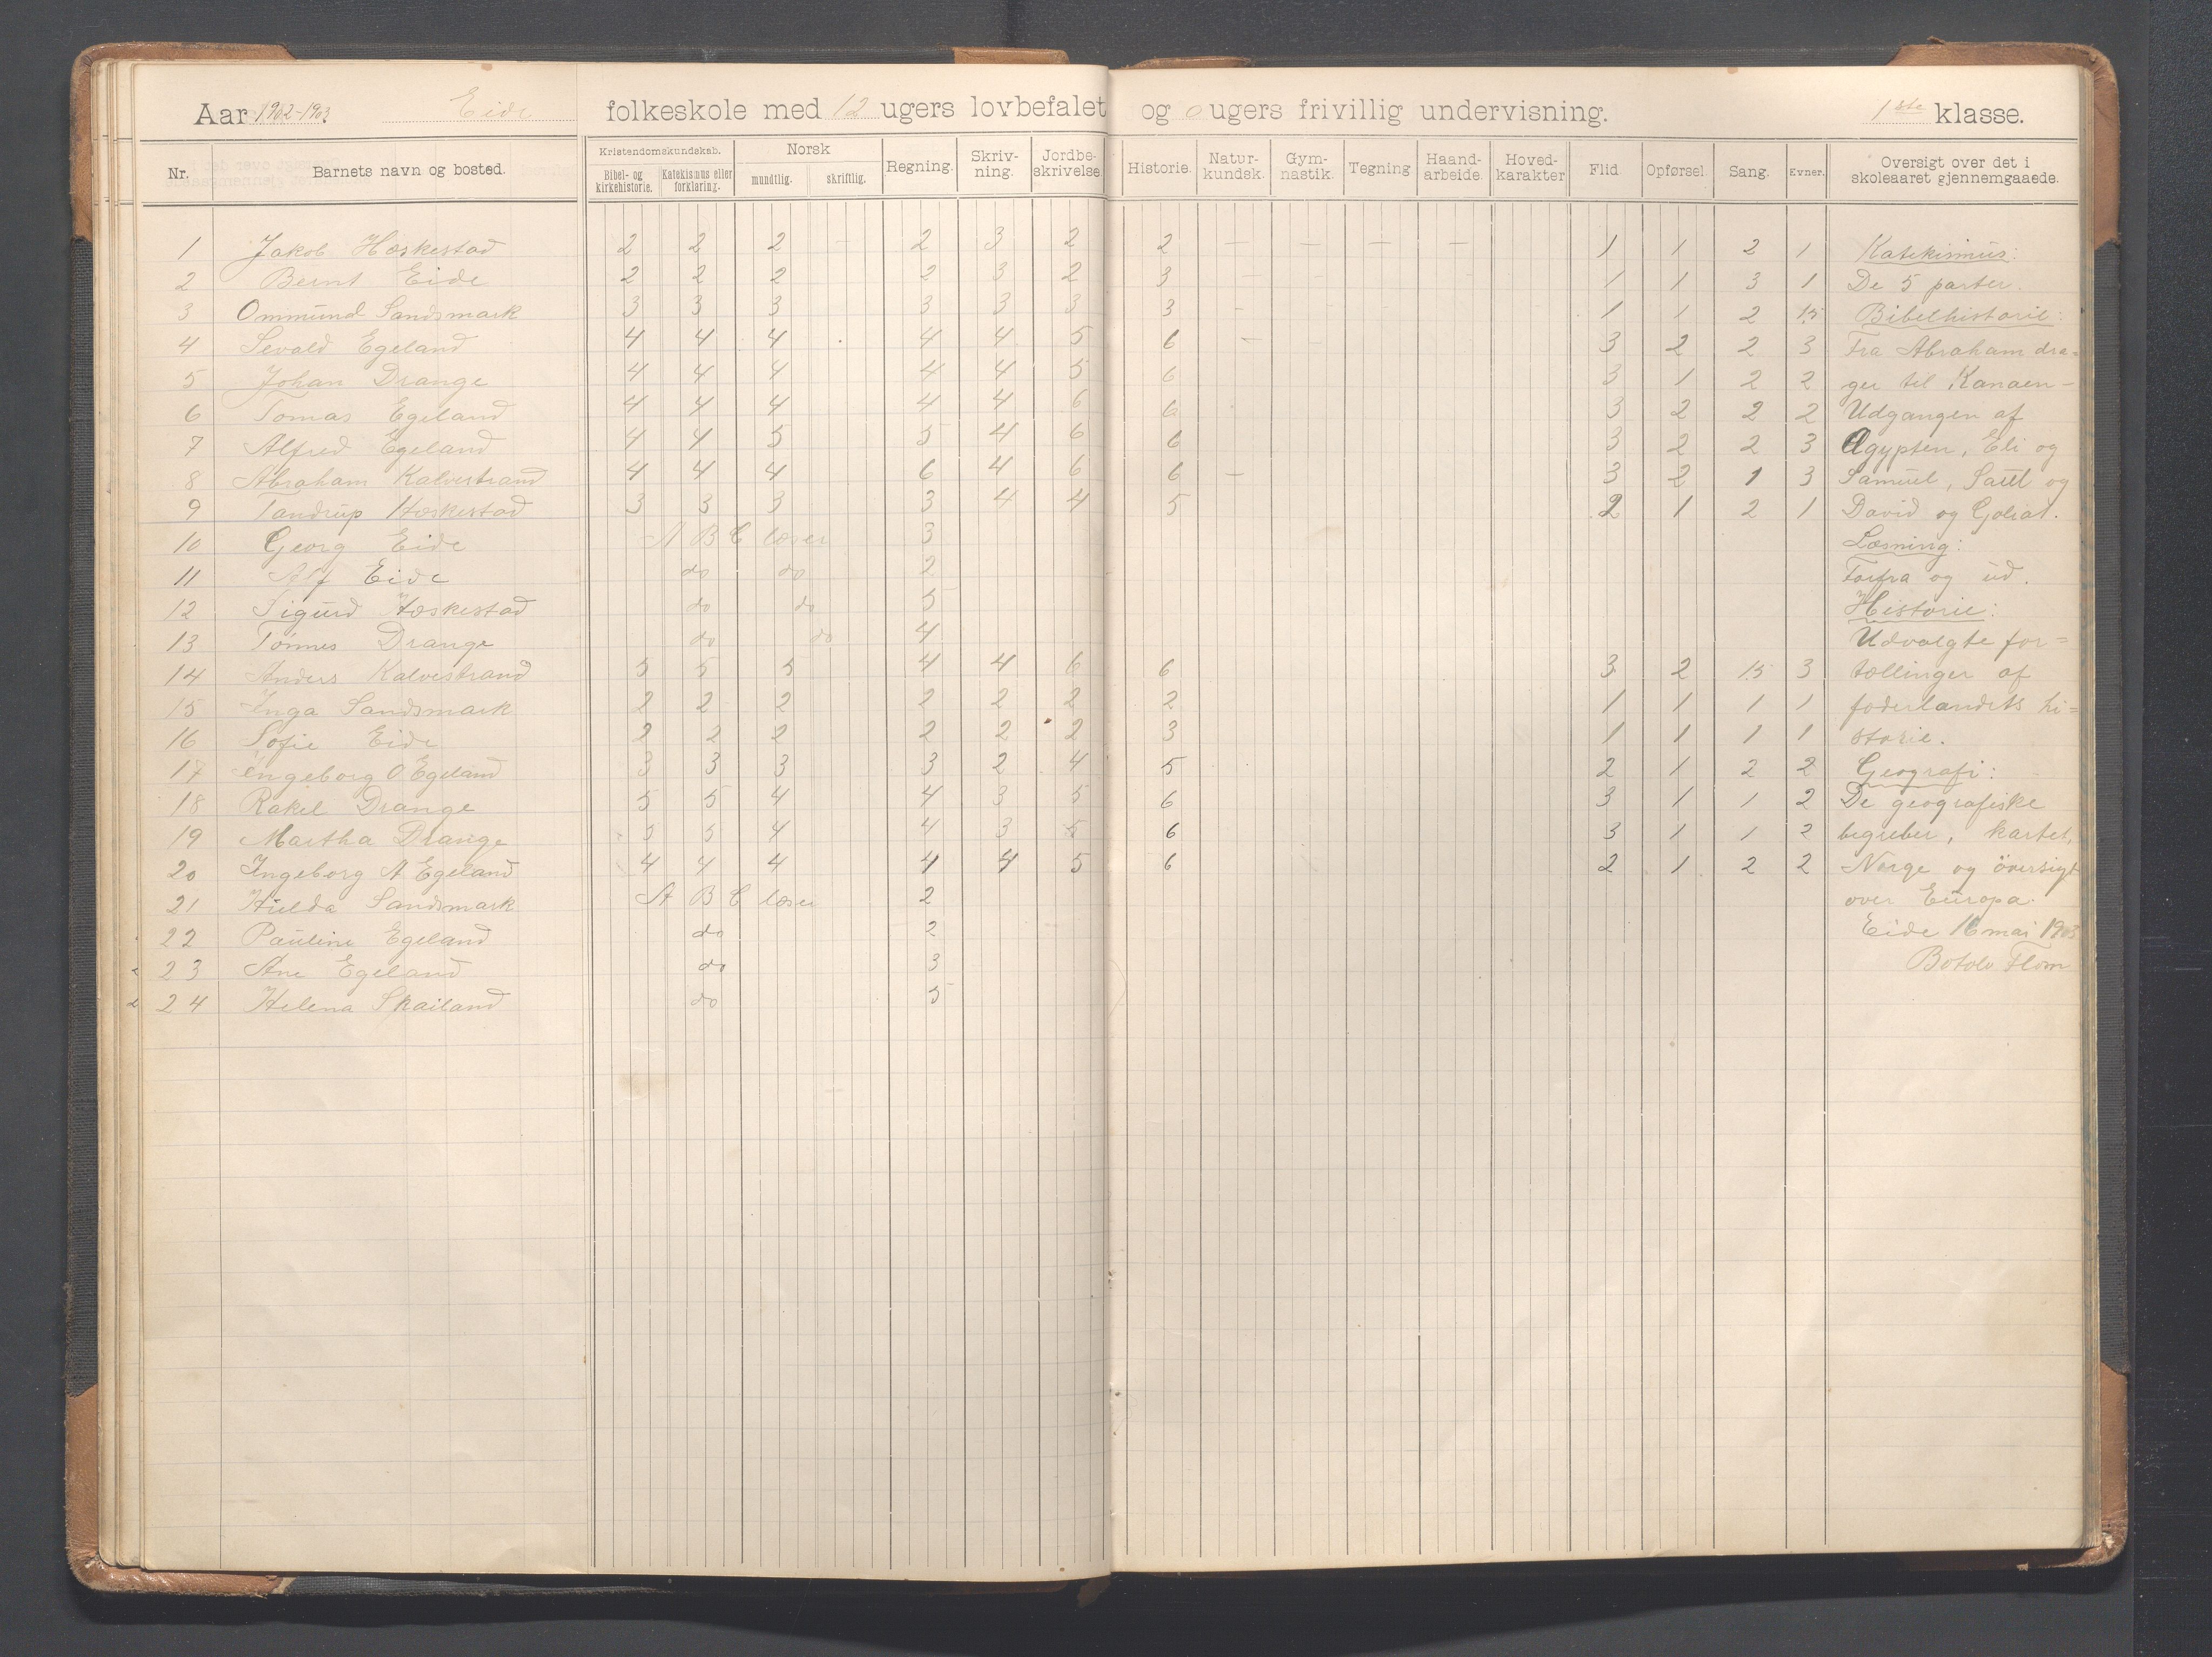 Aar 1902-1903 Eide folkeskole med 12 ugers lovbefalet og 0 ugers frivillig undervisning. 1ste klasse.
Nr. Barnets navn og bosted. Kristendomskundskab. Bibel- og kirkehistorie. Katekismus eller forklaring. Norsk mundtlig. skriftlig. Regning. Skriv-ning. Jordbe-skrivelse. Historie. Natur-kundsk. Gym-nastik. Tegning Haand-arbeide. Hoved-karakter Flid Opførsel. Sang. Evner. Oversigt over det i skoleaaret gjennemgaaede.
1 Jakob Hæskestad 2 2 2 – 2 3 2 2 – – – – 1 1 2 1 Katekismus:
2 Bernt Eide 2 2 2 2 3 2 3 – – 1 1 3 1 De 5 parter.
3 Ommund Sandsmark 3 3 3 3 3 3 3 – 1 1 2 1.5 Bibelhistorie:
4 Sevald Egeland 4 4 4 4 4 5 6 – – 3 2 2 3 Fra Abraham dra=
5 Johan Drange 4 4 4 4 4 5 6 3 1 2 2 ger til Kanaen –
6 Tomas Egeland 4 4 4 4 4 6 6 3 2 2 2 Udgangen af
7 Alfred Egeland 4 4 5 5 4 6 6 3 2 2 3 Ægypten, Eli og
8 Abraham Kalvestrand 4 4 4 6 4 6 6 – 3 2 1 3 Samuel, Saul og
9 Tandrup Hæskestad 3 3 3 3 4 4 5 2 1 2 1 David og Goliat.
10 Georg Eide A B C læser 3 Læsning:
11 Alf Eide do do 2 Forfra og ud.
12 Sigurd Hæskestad do do 5 Historie:
13 Tönnes Drange do do 4 Udvalgte for=
14 Anders Kalvestrand 5 5 5 4 4 6 6 3 2 1.5 3 tællinger af
15 Inga Sandsmark 2 2 2 2 2 2 2 1 1 1 1 fæderlandets hi=
16 Sofie Eide 2 2 2 2 2 2 3 1 1 1 1 storie.
17 Ingeborg O Egeland 3 3 3 3 2 4 5 2 1 2 2 Geografi:
18 Rakel Drange 5 5 4 4 3 5 6 3 1 1 2 De geografiske
19 Martha Drange 5 5 4 4 3 5 6 3 1 1 2 begreber, kartet,
20 Ingeborg A Egeland 4 4 4 4 4 5 6 2 1 2 2 Norge og översigt
21 Hulda Sandsmark A B C læser 2 over Europa.
22 Pauline Egeland do 2 Eide 16 mai 1903
23 Ane Egeland do 3 Botolv Flom
24 Helena Skailand do 5